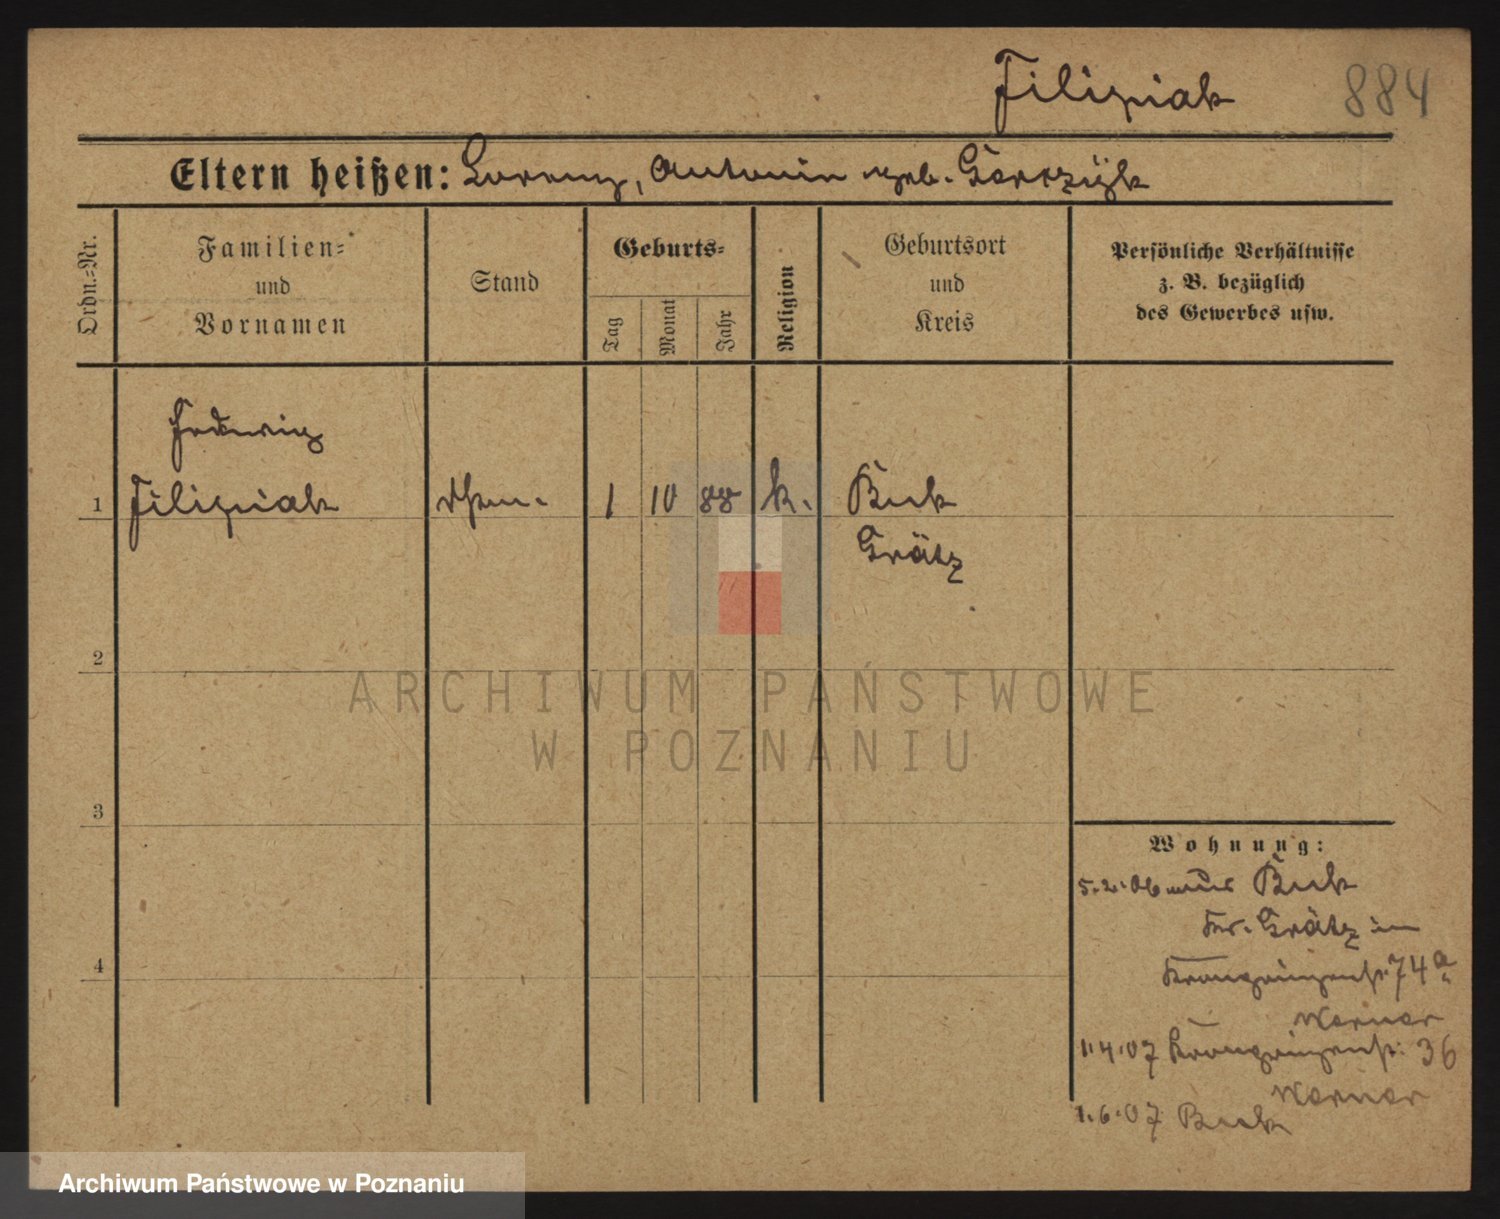 Filipiak 884
Eltern heißen: Lorenz, Antonin geb. Gorczyk
Ordn.-Nr.
Familien- und Vornamen
Stand
Geburts-
Tag
Monat
Jahr
Religion
Geburtsort und Kreis
Persönliche Verhältnisse
z. B. bezüglich
des Gewerbes usw.
Hedwig
1 Filipiak 1 10 88 k. Buk
Grätz
2
3
4
ARCHIWUM PAŃSTWOWE
W POZNANIU
Wohnung:
5.2.06 aus Buk
Kr. Grätz in
Kronprinzenstr. 74a
Werner
1.4.07 Kronprinzenstr. 36
Werner
1.6.07 Buk
Archiwum Państwowe w Poznaniu